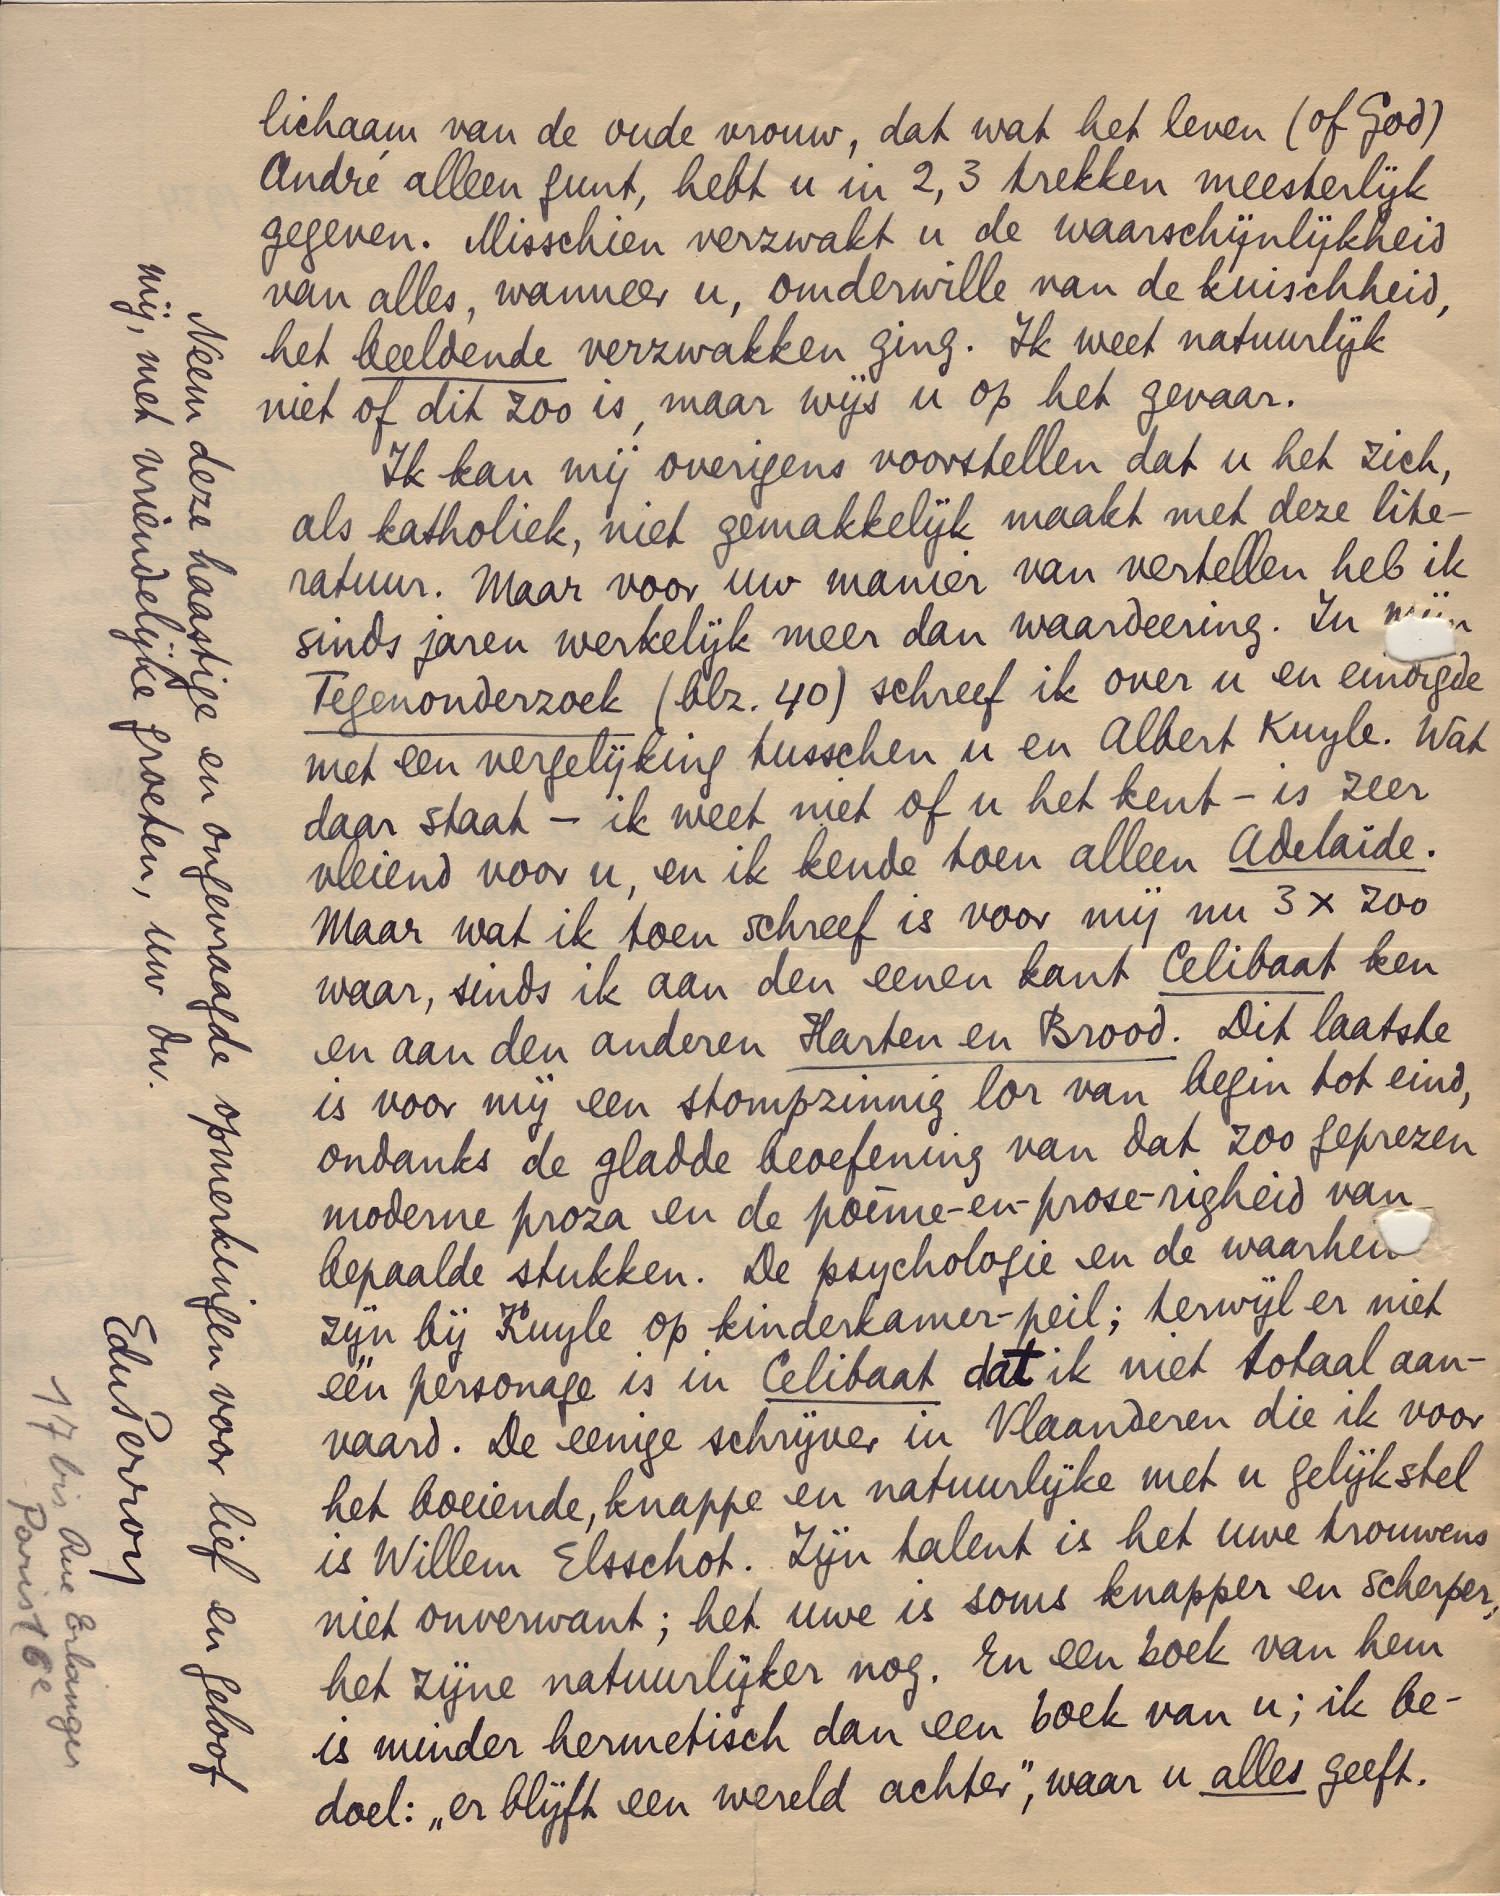 lichaam van de oude vrouw, dat wat het leven (of God)
André alleen gunt, hebt u in 2, 3 trekken meesterlijk
gegeven. Misschien verzwakt u de waarschijnlijkheid
van alles, wanneer u, omderwille van de kuischheid,
het beeldende verzwakken ging. Ik weet natuurlijk
niet of dit zoo is, maar wijs u op het gevaar.
Ik kan mij overigens voorstellen dat u het zich,
als katholiek, niet gemakkelijk maakt met deze lite-
ratuur. Maar voor uw manier van vertellen heb ik
sinds jaren werkelijk meer dan waardeering. In mijn
Tegenonderzoek (blz. 40) schreef ik over u en eindigde
met een vergelijking tusschen u en Albert Kuyle. Wat
daar staat – ik weet niet of u het kent – is zeer
vleiend voor u, en ik kende toen alleen Adelaïde.
Maar wat ik toen schreef is voor mij nu 3 x zoo
waar, sinds ik aan den eenen kant Celibaat ken
en aan den anderen Harten en Brood. Dit laatste
is voor mij een stompzinnig lor van begin tot eind,
ondanks de gladde beoefening van dat zoo geprezen
moderne proza en de poëme-en-prose-righeid van
bepaalde stukken. De psychologie en de waarheid
zijn bij Kuyle op kinderkamer-peil; terwijl er niet
één personage is in Celibaat dat ik niet totaal aan-
vaard. De eenige schrijver in Vlaanderen die ik voor
het boeiende, knappe en natuurlijke met u gelijkstel
is Willem Elsschot. Zijn talent is het uwe trouwens
niet onverwant; het uwe is soms knapper en scherper,
het zijne natuurlijker nog. En een boek van hem
is minder hermetisch dan een boek van u; ik be-
doel: „er blijft een wereld achter”, waar u alles geeft.
Neem deze haastige en ongevraagde opmerkingen voor lief en geloof
mij, met vriendelijke groeten, uw dw.
EduPerron
17 bis Rue Erlanger
Paris 16e